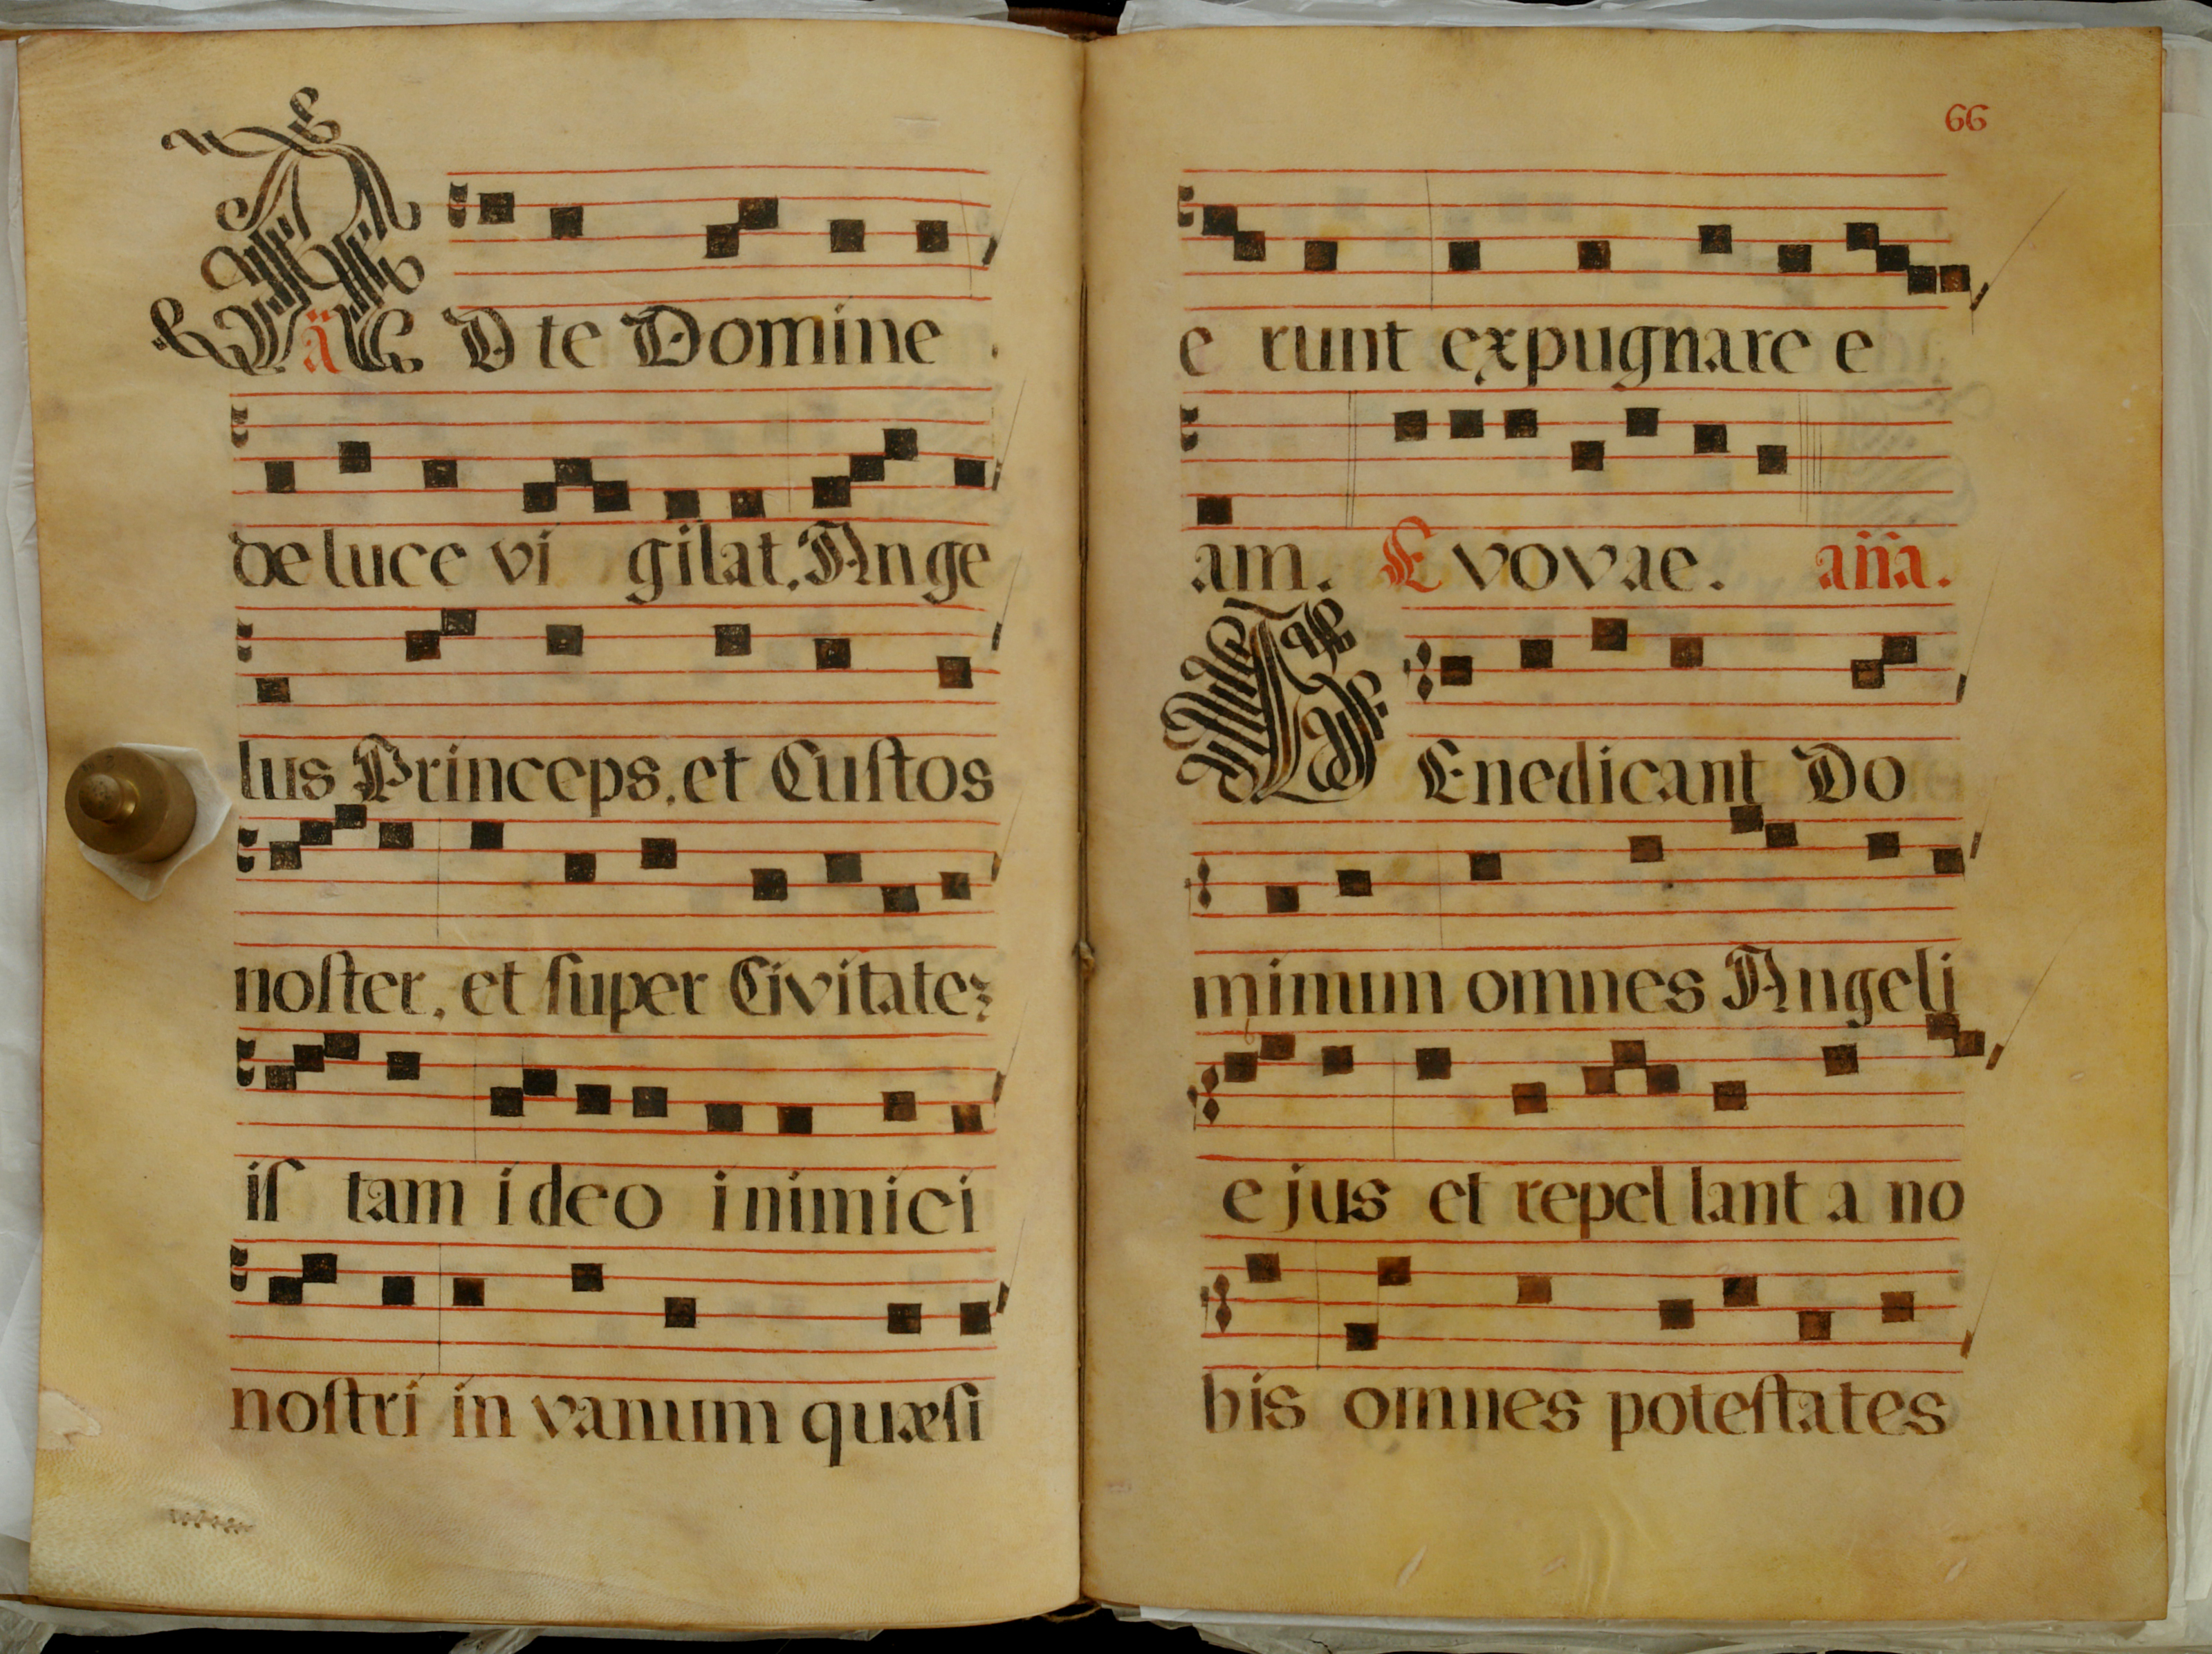 ã
AD te Domine
de luce vi gilat, Ange
lus Princeps, et Cuſtos
noſter, et ſuper Civitateꝫ
iſ tam ideo inimici
noſtri in vanum quæſi
66
e runt expugnare e
am. Evovae. añã.
BEnedicant Do
minum omnes Angeli
ejus et repel lant a no
bis omnes poteſtates